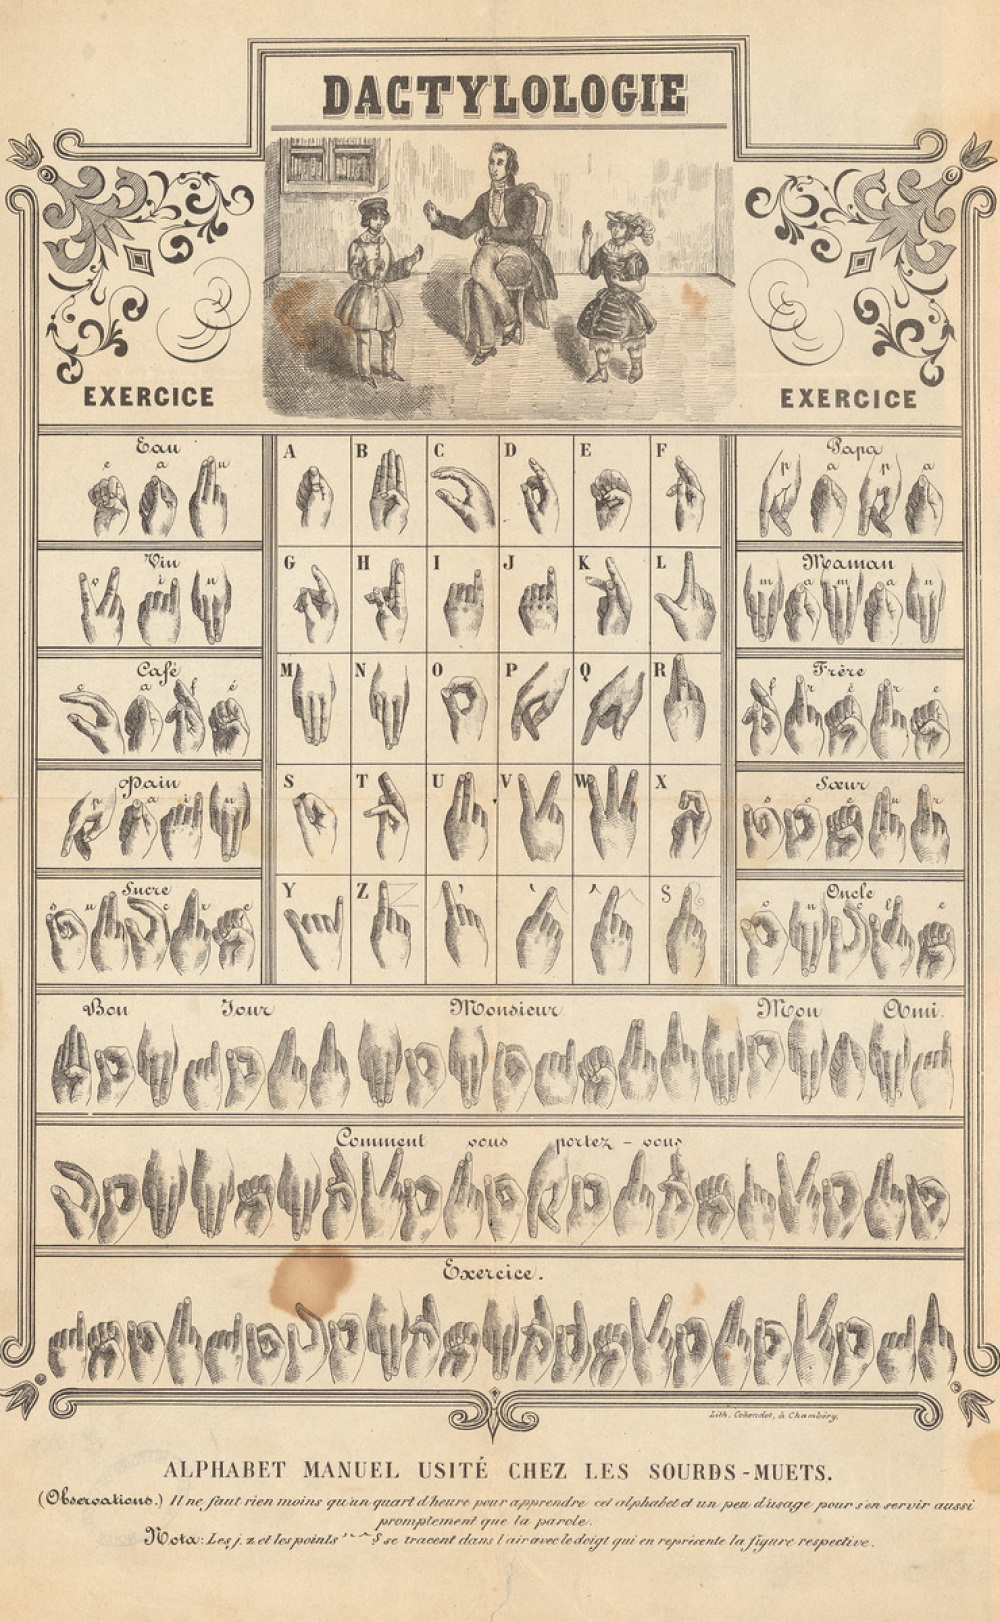 DACTYLOLOGIE
EXERCICE
EXERCICE
Eau
e a u
Vin
v i n
Café
c a f é
Pain
p a i n
Sucre
s u c r e
A B C D E F
G H I J K L
M N O P Q R
S T U V W X
Y Z ’ ‘ ^ S
Papa
p a p a
Maman
m a m a n
Frère
f r è r e
Sœur
s o e u r
Oncle
o n c l e
Bon Jour Monsieur Mon Ami.
Comment vous portez - vous
Exercice.
Lith. Cohendet, à Chambéry.
ALPHABET MANUEL USITÉ CHEZ LES SOURDS-MUETS.
(Observations.) Il ne faut rien moins qu'un quart d'heure pour apprendre cet alphabet et un peu d'usage pour s'en servir aussi
promptement que la parole.
Nota: Les j. z et les points ’ ‘ ^ S se tracent dans l'air avec le doigt qui en représente la figure respective.